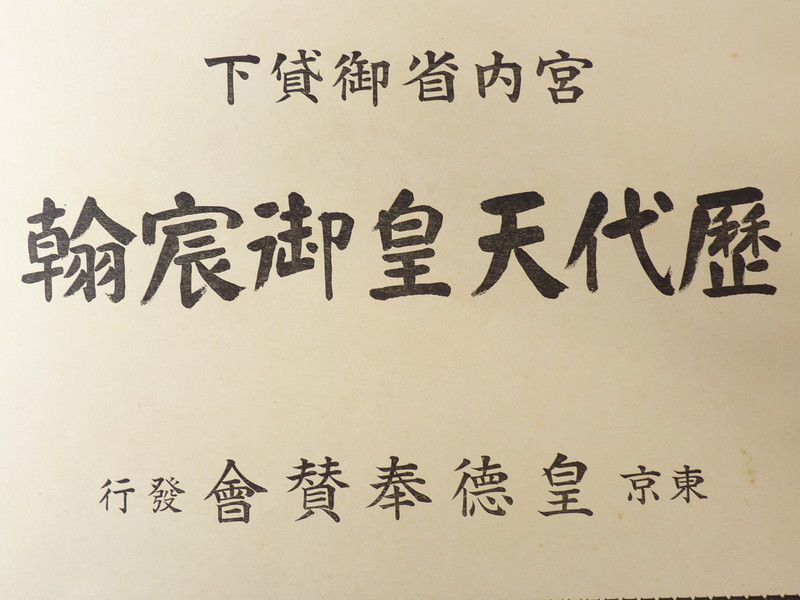 宮内省御貸下
歷代天皇御宸翰
東京皇德奉賛會發行